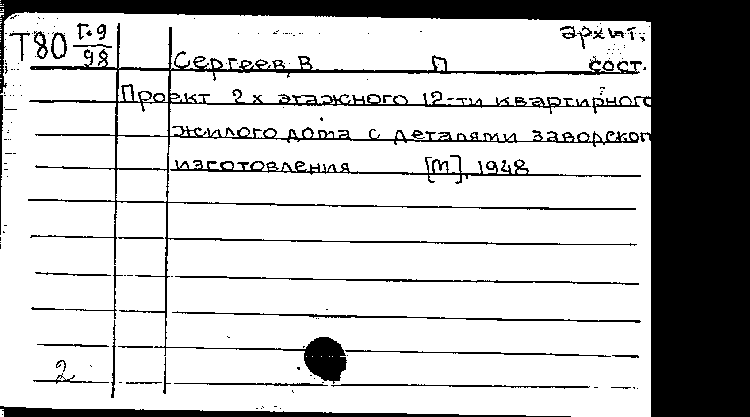 Т80 Г.9/98
архит.
Сергеев, В. П. сост.
Проект 2х этажного 12-ти квартирного
жилого дома с деталями заводског
изготовления [М], 1948
2